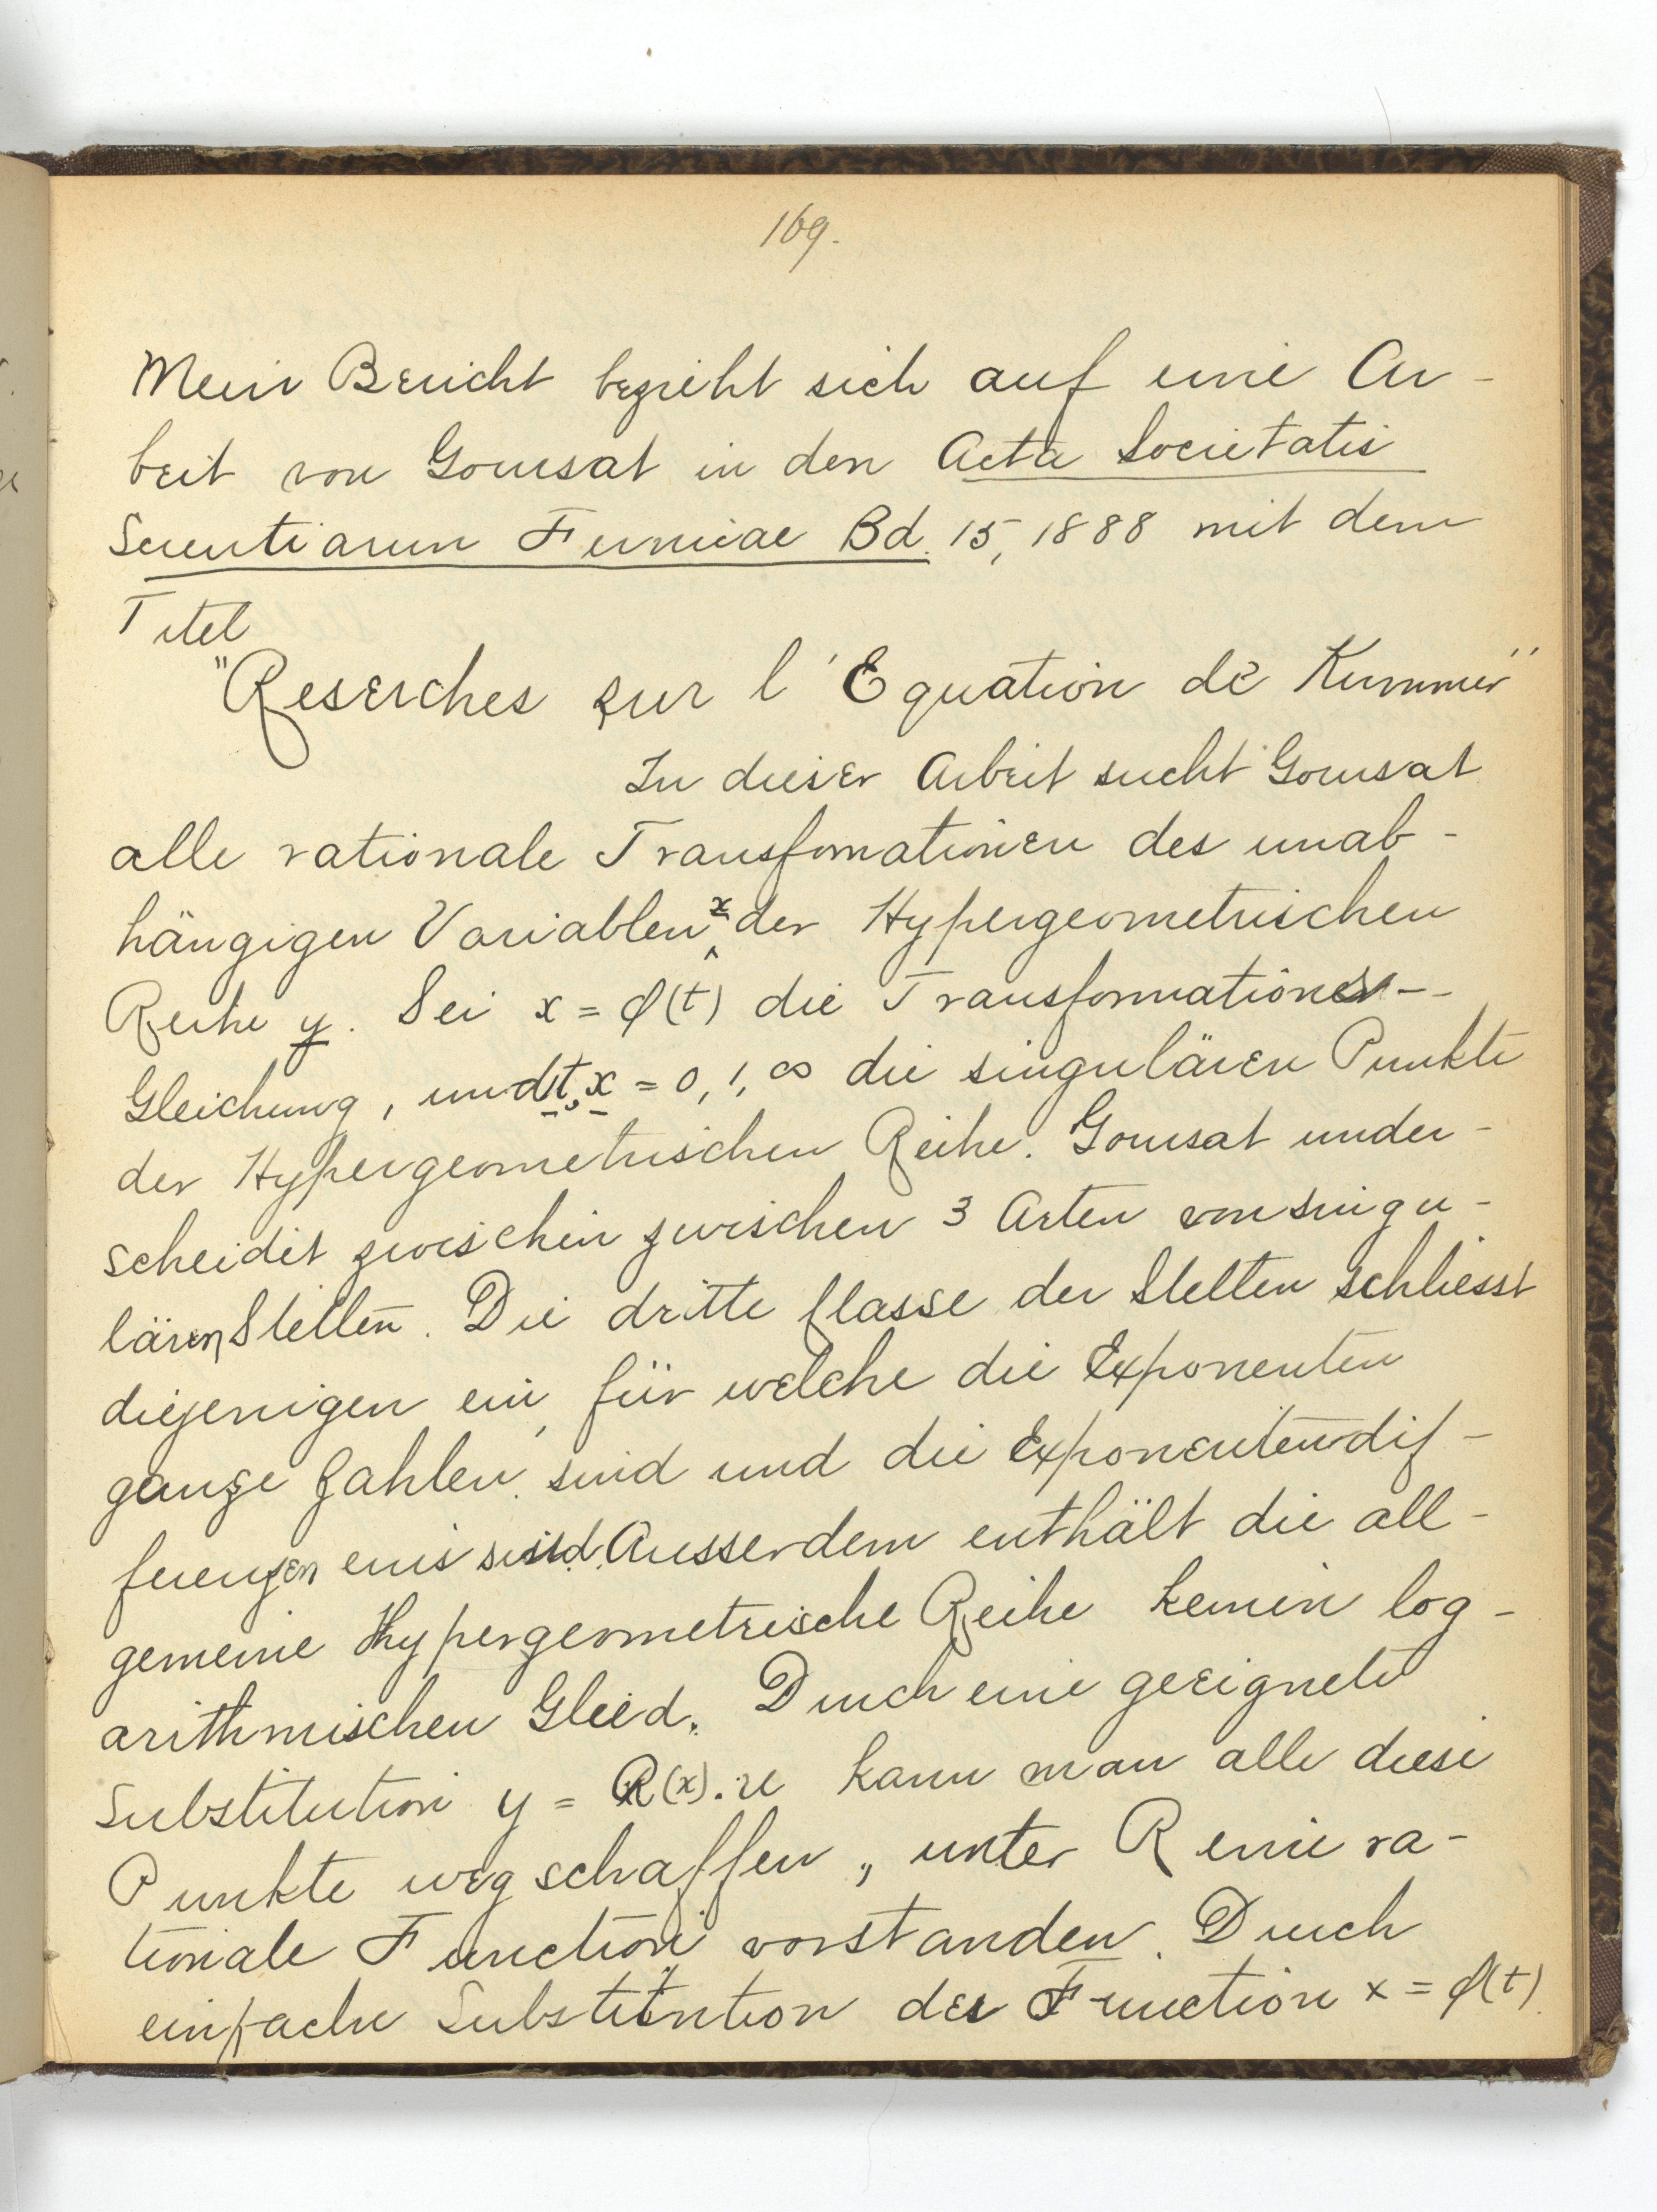 169.
Mein Bericht bezieht sich auf eine Ar-
beit von Goursat in den Acta Societatis
Scientiarum Fennicae Bd. 15, 1888 mit dem
Titel
"Reserches sur l'Equation de Kummer"
In dieser Arbeit sucht Goursat
alle rationale Transfomationen des unab-
hängigen Variablen x der Hypergeometrischen
Reihe y. Sei x = φ(t) die Transformations-
Gleichung, und t, x = 0, 1, ∞ die singulären Punkte
der Hypergeometrischen Reihe. Goursat under-
scheidet zwischen zwischen 3 Arten von singu-
lären Stellen. Die dritte Classe der Stellen schliesst
diejenigen ein, für welche die Exponenten
ganze Zahlen sind und die Exponentendif-
ferenzen eins sind. Ausserdem enthält die all-
gemeine Hypergeometrische Reihe keinen log-
arithmischen Glied. Durch eine geeignete
Substitution y = R(x). u kann man alle diese
Punkte wegschaffen, unter R eine ra-
tionale Function vorstanden. Durch
einfache Substitution der Function x = φ(t).